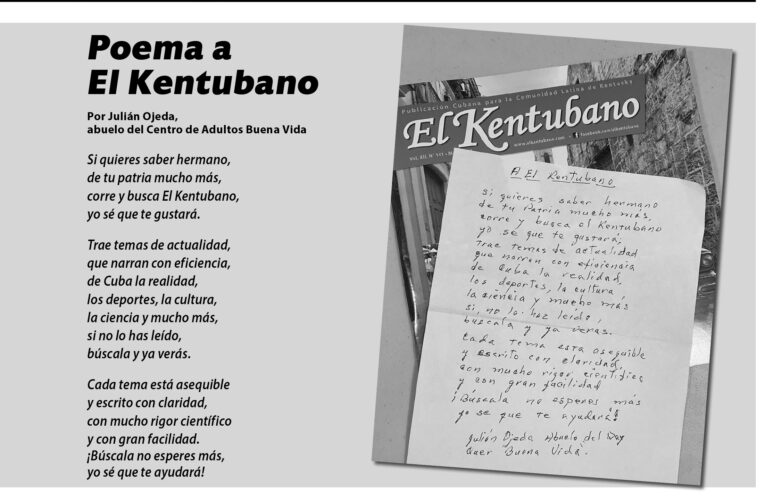 Poema a
El Kentubano
Por Julián Ojeda,
abuelo del Centro de Adultos Buena Vida
Si quieres saber hermano,
de tu patria mucho más,
corre y busca El Kentubano,
yo sé que te gustará.
Trae temas de actualidad,
que narran con eficiencia,
de Cuba la realidad,
los deportes, la cultura,
la ciencia y mucho más,
si no lo has leído,
búscala y ya verás.
Cada tema está asequible
y escrito con claridad,
con mucho rigor científico
y con gran facilidad.
¡Búscala no esperes más,
yo sé que te ayudará!
Publicación Cubana para la Comunidad Latina de Kentucky
El Kentubano
www.elkentubano.com
facebook.com/elkentubano
Vol. XII, N° 141
A El Kentubano
Si quieres saber hermano
de tu Patria mucho más,
corre y busca el Kentubano
yo se que te gustará,
Trae temas de actualidad
que narran con eficiencia
de Cuba la realidad,
los deportes, la cultura
la ciencia y mucho más
si, no lo haz leído,
búscala y ya veras.
Cada tema esta asequible
y escrito con claridad,
con mucho rigor científico
y con gran facilidad
¡Búscala no esperes más
yo se que te ayudará!
Julián Ojeda Abuelo del Day
Quer Buena Vida.